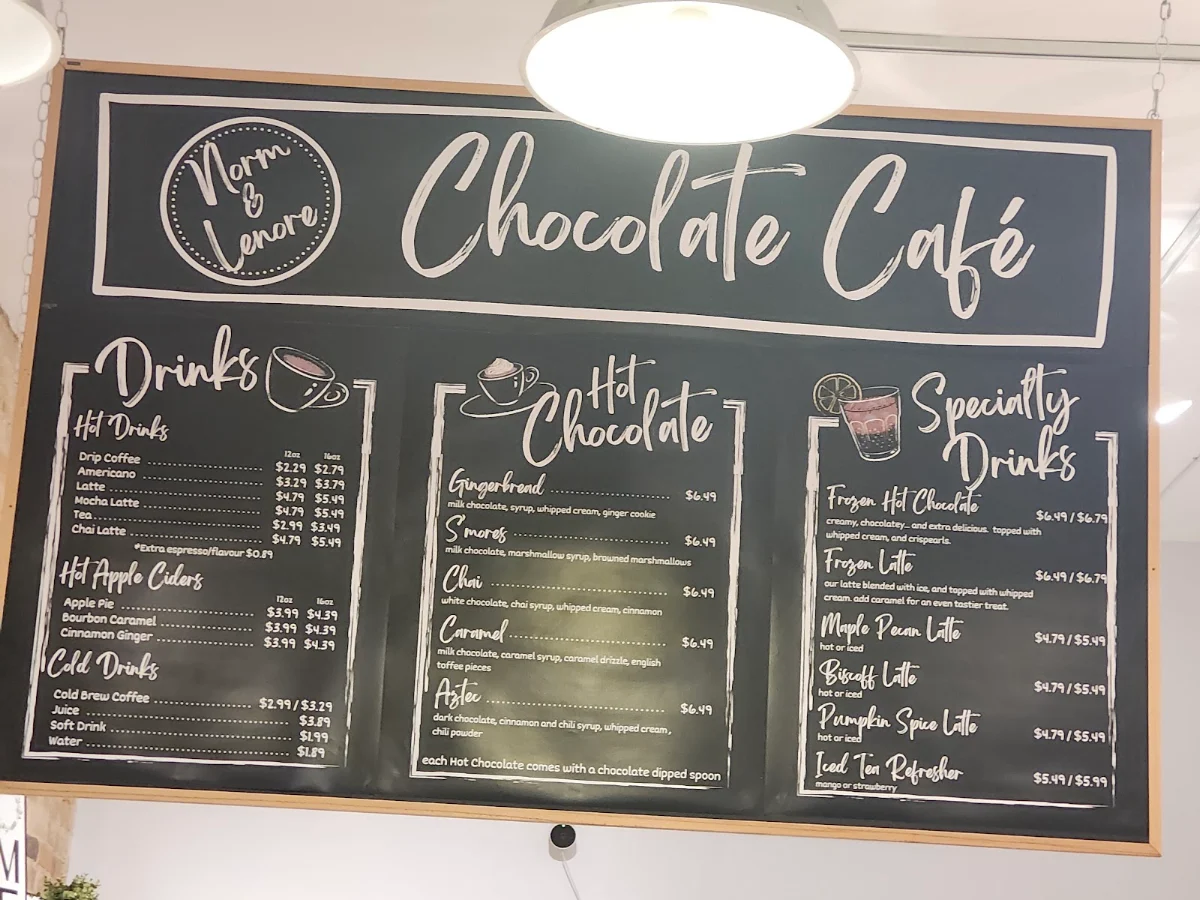 Norm
&
Lenore
Chocolate Café
Drinks
Hot Drinks
12oz 16oz
Drip Coffee $2.29 $2.79
Americano $3.29 $3.79
Latte $4.79 $5.49
Mocha Latte $4.79 $5.49
Tea $2.99 $3.49
Chai Latte $4.79 $5.49
*Extra espresso/flavour $0.89
Hot Apple Ciders
12oz 16oz
Apple Pie $3.99 $4.39
Bourbon Caramel $3.99 $4.39
Cinnamon Ginger $3.99 $4.39
Cold Drinks
Cold Brew Coffee $2.99 / $3.29
Juice $3.89
Soft Drink $1.99
Water $1.89
Hot
Chocolate
Gingerbread $6.49
milk chocolate, syrup, whipped cream, ginger cookie
S'mores $6.49
milk chocolate, marshmallow syrup, browned marshmallows
Chai $6.49
white chocolate, chai syrup, whipped cream, cinnamon
Caramel $6.49
milk chocolate, caramel syrup, caramel drizzle, english
toffee pieces
Aztec $6.49
dark chocolate, cinnamon and chili syrup, whipped cream,
chili powder
each Hot Chocolate comes with a chocolate dipped spoon
Specialty
Drinks
Frozen Hot Chocolate $6.49 / $6.79
creamy, chocolatey... and extra delicious. topped with
whipped cream, and crispearls.
Frozen Latte $6.49 / $6.79
our latte blended with ice, and topped with whipped
cream. add caramel for an even tastier treat.
Maple Pecan Latte $4.79 / $5.49
hot or iced
Biscoff Latte $4.79 / $5.49
hot or iced
Pumpkin Spice Latte $4.79 / $5.49
hot or iced
Iced Tea Refresher $5.49 / $5.99
mango or strawberry
M